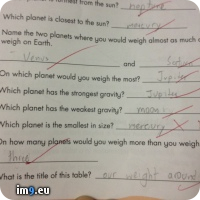 furthest from the sun? neptune
Which planet is closest to the sun? mercury
Name the two planets where you would weigh almost as much
weigh on Earth.
Venus and
On which planet would you weigh the most? Jupiter
Which planet has the strongest gravity? Jupiter
Which planet has the weakest gravity? moon
Which planet is the smallest in size? mercury
On how many planets would you weigh more than you weigh
three
What is the title of this table? our weight around
im9.eu